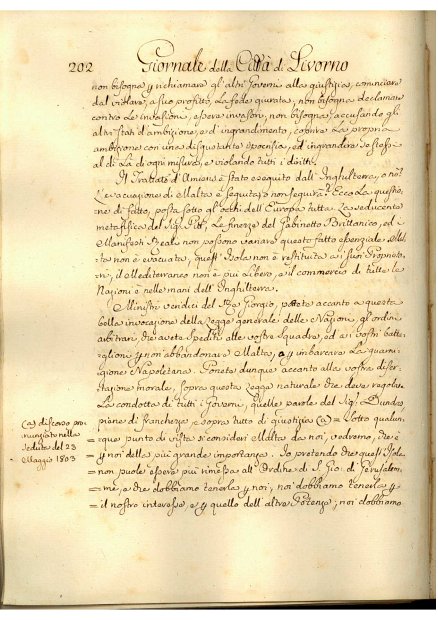 202 Giornale della Città di Livorno
non bisogna p richiamare gl'altri Governi alla giustizia, cominciare
dal violare, a suo profitto, la fede giurata, non bisogna declamare
contro le invasione, e essere invasori, non bisogna accusando gli
altri stati d'ambizione, e d'ingrandimento, coprire la propria
ambizione con una disgustante ipocrisia, ed ingrandire se stesso
al di là di ogni misura, e violando tutti i diritti.
Il Trattato d'Amiens è stato eseguito dall'Inghilterra, o nò?
L'evacuazione di Malta è seguita, o non seguita? Ecco la questio-
ne di fatto, posta sotto gl'occhi dell'Europa tutta. La seducente
metafisica del Sigr Pitt, le finezze del Gabinetto Brittanico, ed i
Manifesti Reali non possono variare questo fatto essenziale. Mal-
ta non è evacuata, quest'Isola non è restituita a i suoi Proprieta-
rj, il Mediterraneo non è più libero, e il commercio di tutte le
Nazioni è nelle mani dell'Inghilterra.
Ministri venduti del Rè Giorgio, ponete accanto a questa
bella invocazione della Legge generale delle Nazioni, gl'ordini
arbitrari, che avete spediti alle vostre Squadre, ed a i vostri batta-
glione p non abbandonare Malta, o p imbarcare la guarni-
gione Napoletana. Ponete dunque accanto alla vostra disser-
tazione morale, sopra questa Legge naturale che deve regolare
la condotta di tutti i Governi, quelle parole del Sigr Dundas
piene di franchezza, e sopra tutto di giustizia (a) = Sotto qualun-
= que punto di vista si consideri Malta da noi, vedremo, che è
= p noi della più grande importanza. Io pretendo che quest'Isola
= non puole essere più rimessa all'Ordine di S. Gio: di Gerusalem-
= me, e che dobbiamo tenerla p noi; noi dobbiamo tenerla p
= il nostro interesse, e p quello dell'altre Potenze; noi dobbiamo
(a) discorso pro-
nunziato nella
seduta del 23
Maggio 1803